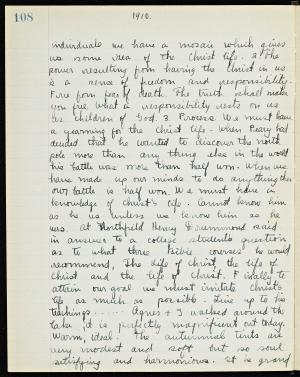 108
1910.
individuals we have a mosaic which gives
us some idea of the Christ life. 2. The
power resulting from having the Christ in us
is a sense of freedom and responsibility.
Free from fear of death. The truth shall make
you free. What a responsibility rests on us
as children of God. 3. Process. We must have
a yearning for the Christ life. When Peary had
decided that he wanted to discover the north
pole more than any thing else in the world
his battle was more than half won. When we
have made up our minds to do anything then
our battle is half won. We must have a
knowledge of Christ's life. Cannot know him
as he is unless we know him as he
was. At Northfield Henry Drummond said
in answer to a college student's question
as to what three Bible courses he would
recommend, The life of Christ, the life of
Christ and the life of Christ. Finally to
attain our goal we must imitate Christ's
life as much as possible. Live up to his
teachings...... Agnes & I walked around the
lake. It is perfectly magnificent out today.
Warm, ideal. The autumnal tints are
very modest and soft but so soul
satisfying and harmonious. It is grand